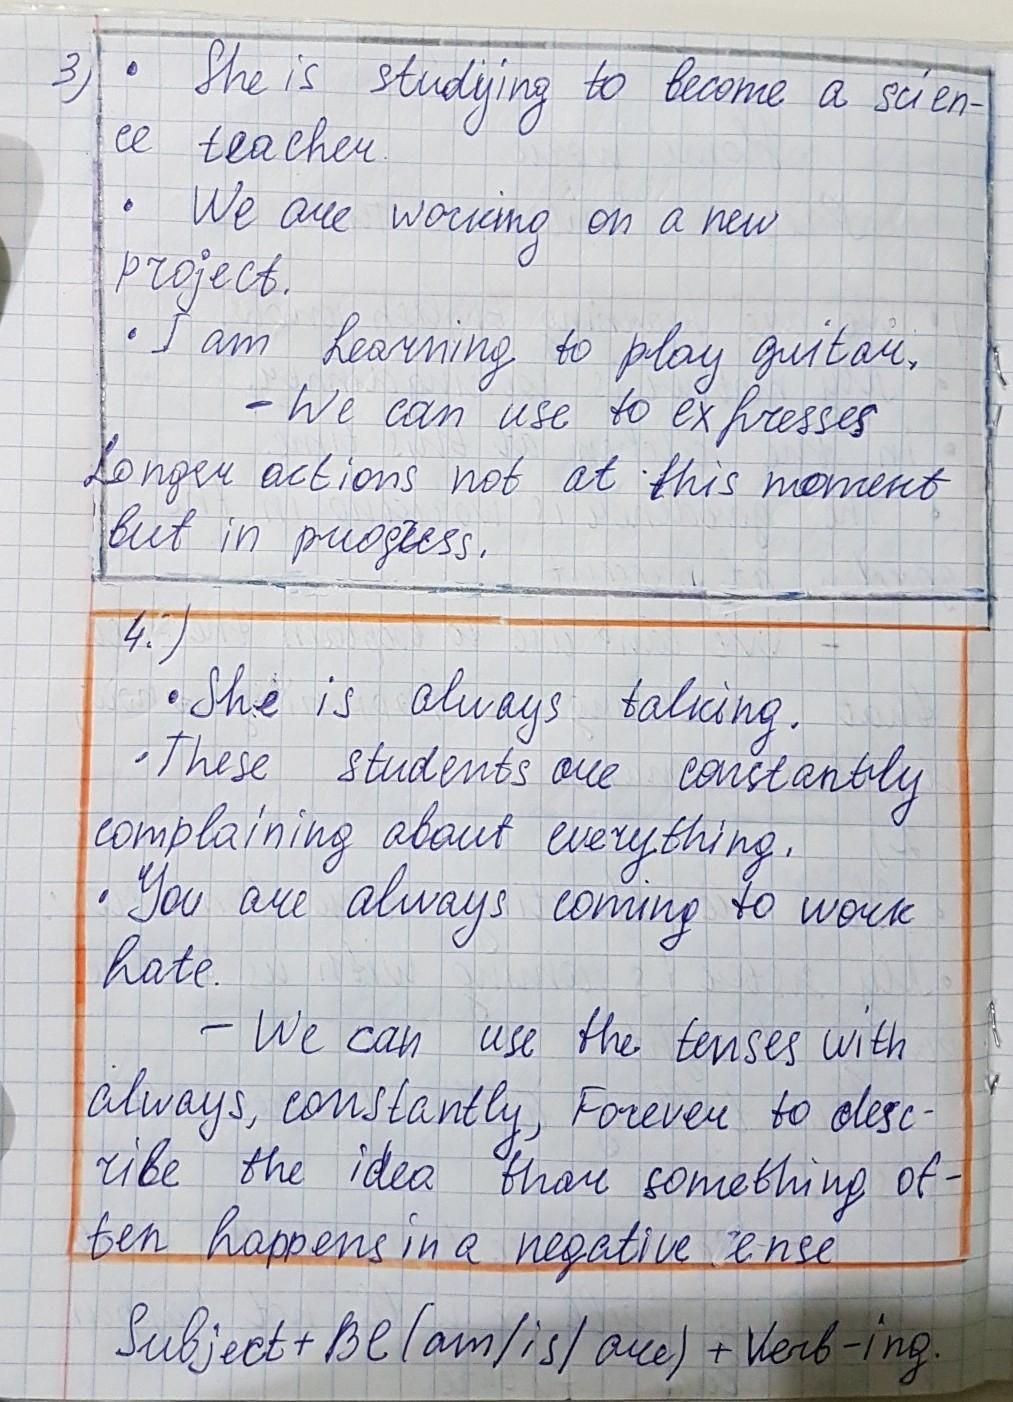 3) • She is studying to become a scien-
ce teacher.
• We are working on a new
project.
• I am Learning to play guitar.
- We can use to expresses
Longer actions not at this moment
but in progress.
4.)
• She is always talking.
• These students are constantly
complaining about everything.
• You are always coming to work
late.
- We can use the tenses with
always, constantly, Forever to desc-
ribe the idea that something of-
ten happens in a negative sense
Subject + Be (am/is/are) + Verb-ing.